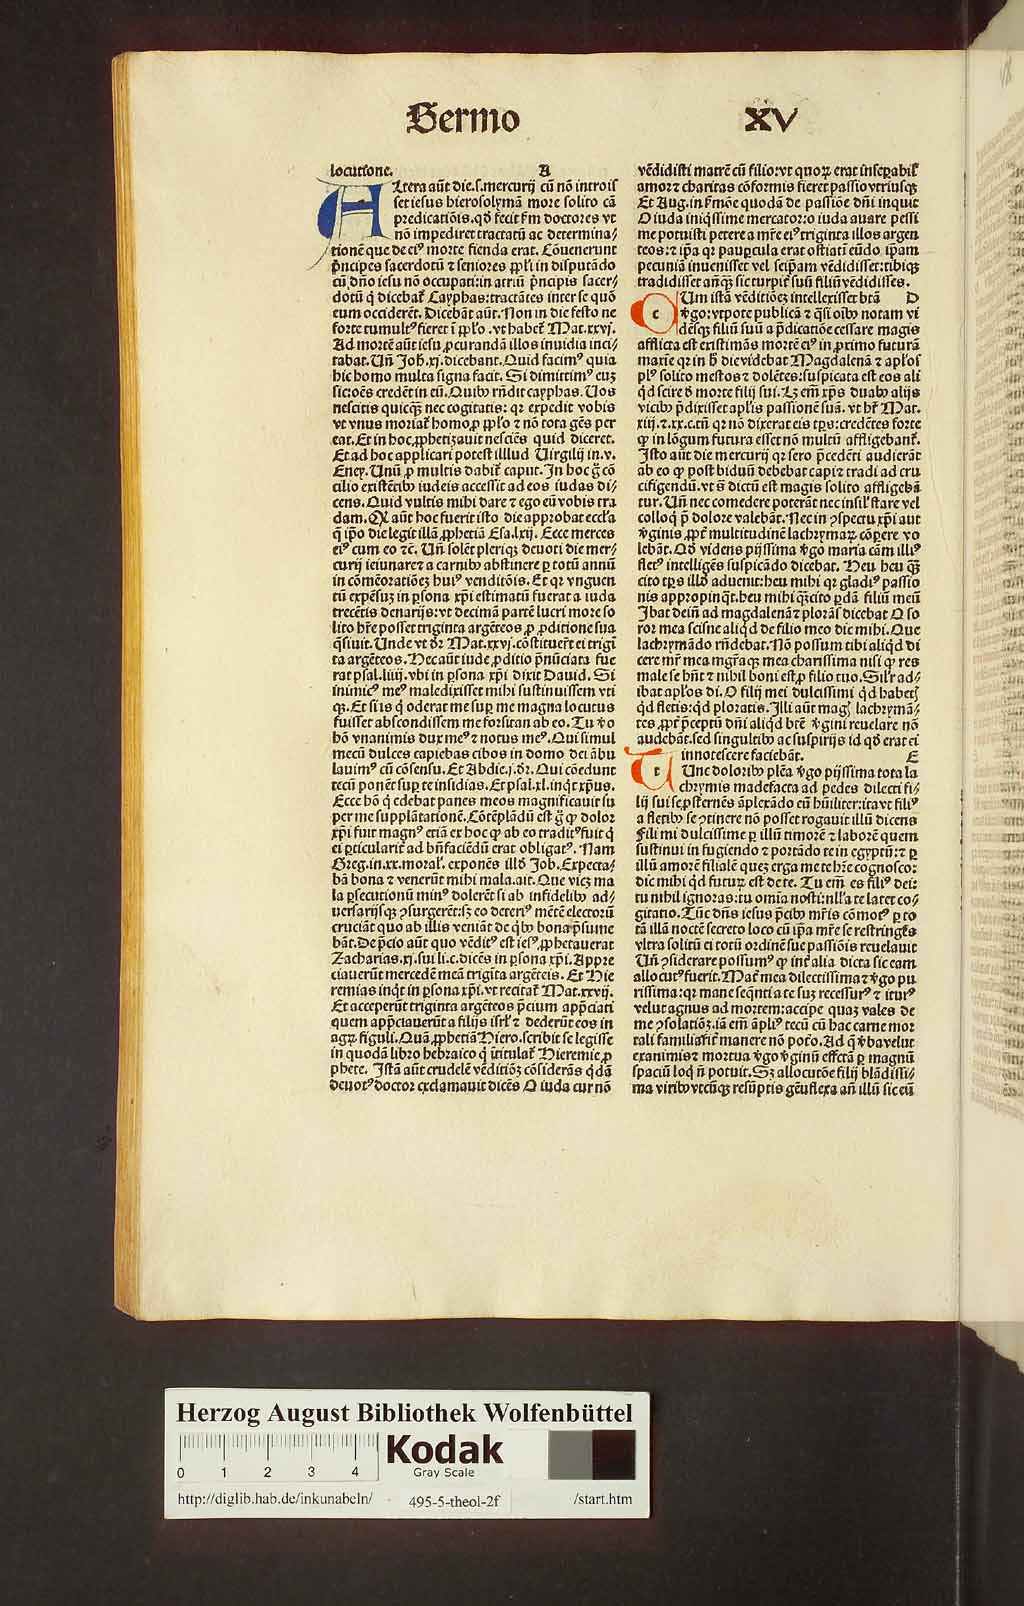 Sermo XV
locutione. A
Altera aūt die.s.mercurij cū nō introis
set iesus hierosolymā more solito cā
predicatiōis.qđ fecit ẜm doctores vt
nō impediret tractatū ac determina⸗
tionē que de eiꝰ morte fienda erat. Cōuenerunt
pͥncipes sacerdotū ⁊ seniores ppl̄i in disputādo
cū dn̄o iesu nō occupati:in atriū pͥncipis sacer⸗
dotū q̇ dicebat᷑ Cayphas:tractātes inter se quō
eum occiderēt. Dicebāt aūt. Non in die festo ne
forte tumultꝰ fieret ī ppl̄o .vt habet᷑ Mat.xxvj.
Ad mortē aūt iesu ꝓcurandā illos inuidia inci⸗
tabat. Un̄ Joh.xj.dicebant. Quid facimꝰ quia
hic homo multa signa facit. Si dimittimꝰ euꝫ
sic:oēs credēt in eū. Quibꝰ rn̄dit cayphas. Uos
nescitis quicqͣꝫ nec cogitatis: qꝛ expedit vobis
vt vnus moriat᷑ homo,ꝓ ppl̄o ⁊ nō tota gēs per
eat. Et in hoc,ꝓphetizauit nesciēs quid diceret.
Et ad hoc applicari potest illud Virgilij in.v.
Eney. Unū ꝓ multis dabit᷑ caput. In hoc g̊ cō
cilio existētibꝰ iudeis accessit ad eos iudas di⸗
cens. Quid vultis mihi dare ⁊ ego eū vobis tra
dam. Qꝫ aūt hoc fuerit isto die approbat eccl̄a
q̇ ip̄o die legit illā ꝓphetiā Esa.lxij. Ecce merces
eiꝰ cum eo ⁊c̄. Un̄ solēt pleriqꝫ deuoti die mer⸗
curij ieiunare ⁊ a carnibꝰ abstinere ꝑ totū annū
in cōmēoratiōeꝫ huiꝰ venditōis. Et qꝛ vnguen
tū expēsuꝫ in ꝑsona xp̄i estimatū fuerat a iuda
trecētis denarijs:vt decimā partē lucri more so
lito hr̄e posset triginta argēteos ꝓ ꝓditione sua
q̄siuit. Unde vt dr̄ Mat.xxvj.cōstituer̄t ei trigī
ta argēteos. Hec aūt iude ꝓditio pn̄unciata fue
rat psal.liiij.vbi in ꝑsona xp̄i dixit Dauid. Si
inimicꝰ meꝰ maledixisset mihi sustinuissem vti
qꝫ. Et si is q̇ oderat me suꝑ me magna locutus
fuisset abscondissem me forsitan ab eo. Tu v̊o
hō vnanimis dux meꝰ ⁊ notus meꝰ. Qui simul
mecū dulces capiebas cibos in domo dei ābu
lauimꝰ cū cōsensu. Et Abdie.j.dr̄. Qui cōedunt
tecū ponēt suꝑ te insidias. Et psal.xl.inq̇t xp̄us.
Ecce hō q̇ edebat panes meos magnificauit su
per me supplātationē. Cōtēplādū est g̊ ꝙ dolor
xp̄i fuit magnꝰ etiā ex hoc ꝙ ab eo traditꝰ fuit q̇
ei ꝑticularit᷑ ad bn̄faciēdū erat obligatꝰ. Nam
Greg.in.xx.moral᷑. exponēs illđ Job. Expecta⸗
bā bona ⁊ venerūt mihi mala.ait. Que viꝫ ma
la ꝑsecutionū minꝰ dolerēt si ab infidelibꝰ ad⸗
uersarijsqꝫ ꝯsurgerēt:sꝫ eo deteriꝰ mētē electorū
cruciāt quo ab illis veniāt de q̇bꝰ bona pͥsume
bāt. De pͥcio aūt quo vēditꝰ est iesꝰ,ꝓphetauerat
Zacharias.xj.sui li.c.dicēs in ꝑsona xp̄i. Appre
ciauerūt mercedē meā trigīta argēteis. Et Hie
remias inq̇t in ꝑsona xp̄i.vt recitat᷑ Mat.xxvij.
Et acceperūt triginta argēteos pͥcium app̄ciati
quem app̄ciauerūt a filijs isrl᷑ ⁊ dederūt eos in
agꝝ figuli. Quā ꝓphetiā Hiero.scribit se legisse
in quodā libro hebraico q̇ ītitulat᷑ Hieremie ꝓ
phete. Istā aūt crudelē vēditiōꝫ cōsiderās q̇dā
deuotꝰ doctor exclamauit dicēs O iuda cur nō
vēdidisti matrē cū filio:vt quoꝝ erat īseꝑabil᷑
amor ⁊ charitas cōformis fieret passio vtriusqꝫ
Et Aug.in ẜmōe quodā de passiōe dn̄i inquit
O iuda iniq̇ssime mercator:o iuda auare pessi
me potuisti petere a mr̄e eiꝰ triginta illos argen
teos:⁊ ip̄a qꝛ pauꝑcula erat ostiatī eūdo ip̄am
pecuniā inuenisset vel seip̄am vēdidisset:tibiqꝫ
tradidisset anqͣꝫ sic turpit᷑ suū filiū vēdidisses.
Cum istā vēditiōeꝫ intellexisset btā D
v̊go:vtpote publicā ⁊ q̄si oībꝰ notam vi
dēsqꝫ filiū suū a pͥdicatiōe cessare magis
afflicta est existimās mortē eiꝰ in ꝓximo futurā
maxīe qꝛ in h̊ die videbat Magdalenā ⁊ apl̄os
plꝰ solito mestos ⁊ dolētes:suspicata est eos ali
q̇d scire d̊ morte filij sui. Lꝫ em̄ xp̄s duabꝰ alijs
vicibꝰ pͥdixisset apl̄is passionē suā. vt hr̄ Mat.
xiij.⁊.xx.c.tn̄ qꝛ nō dixerat eis tp̄s:credētes forte
ꝙ in lōgum futura esset nō multū affligebant᷑.
Isto aūt die mercurij qꝛ sero pͥcedēti audierāt
ab eo ꝙ post biduū debebat capi ⁊ tradi ad cru
cifigendū.vt s̄ dictū est magis solito affligebā
tur. Un̄ nec comedere poterāt nec insil᷑ stare vel
colloq̇ pͥ dolore valebāt. Nec in ꝯspectu xp̄i aut
v̊ginis ,ꝓpt᷑ multitudinē lachrymaꝝ cōꝑere vo
lebāt. Qđ videns pijssima v̊go maria cām illiꝰ
fletꝰ intelligēs suspicādo dicebat. Heu heu qͣꝫ
cito tp̄s illđ aduenit:heu mihi qꝛ gladiꝰ passio
nis appropinq̇t.heu mihi qͣꝫcito ꝑdā filiū meū
Ibat dein̄ ad magdalenā ⁊ plorās dicebat O so
ror mea scisne aliq̇d de filio meo dic mihi. Que
lachrymādo rn̄debat. Nō possum tibi aliq̇d di
cere mr̄ mea mgr̄aqꝫ mea charissima nisi ꝙ res
male se hn̄t ⁊ nihil boni est ꝓ filio tuo. Sil᷑r ad⸗
ibat apl̄os di. O filij mei dulcissimi q̇d habetꝭ
q̇d fletis:q̇d ploratis. Illi aūt magꝭ lachrymā⸗
tes ,ꝓpt᷑ pͥceptū dn̄i aliq̇d btē v̊gini reuelare nō
audebāt.sed singultibꝰ ac suspirijs id qđ erat ei
innotescere faciebāt. E
Tunc doloribꝰ plēa v̊go pijssima tota la
chrymis madefacta ad pedes dilecti fi⸗
lij sui se ꝓsternēs āplexādo eū hūiliter:ita vt filiꝰ
a fletibꝰ se ꝯtinere nō posset rogauit illū dicens
Fili mi dulcissime ꝑ illū timorē ⁊ laborē quem
sustinui in fugiendo ⁊ portādo te in egyptū:⁊ ꝑ
illū amorē filialē queꝫ erga me te hr̄e cognosco:
dic mihi q̇d futuꝝ est de te. Tu em̄ es filiꝰ dei:
tu nihil ignoras:tu omīa nosti:nll᷑a te latet co⸗
gitatio. Tūc dn̄s iesus pͥcibꝰ mr̄is cōmotꝰ ꝑ to
tā illā noctē secreto loco cū ip̄a mr̄e se restringēs
vltra solitū ei totū ordinē sue passiōis reuelauit
Un̄ ꝯsiderare possumꝰ ꝙ int᷑ alia dicta sic eam
allocutꝰ fuerit. Mat᷑ mea dilectissima ⁊ v̊go pu
rissima:qꝛ mane seq̄nti a te suꝫ recessurꝰ ⁊ iturꝰ
velut agnus ad mortem:accipe quaꝫ vales de
me ꝯsolatiōꝫ.iā em̄ āpliꝰ tecū cū hac carne mor
tali familiarit᷑ manere nō poťo. Ad q̇ v̊ba velut
exanimis ⁊ mortua v̊go v̊ginū effecta ꝑ magnū
spaciū loq̇ nō potuit. Sꝫ allocutōe filij blādissi⸗
ma viribꝰ vtcūqꝫ resūptis gēuflexa an̄ illū sic eū
Herzog August Bibliothek Wolfenbüttel
Kodak
Gray Scale
0 1 2 3 4
http://diglib.hab.de/inkunabeln/ 495-5-theol-2f /start.htm